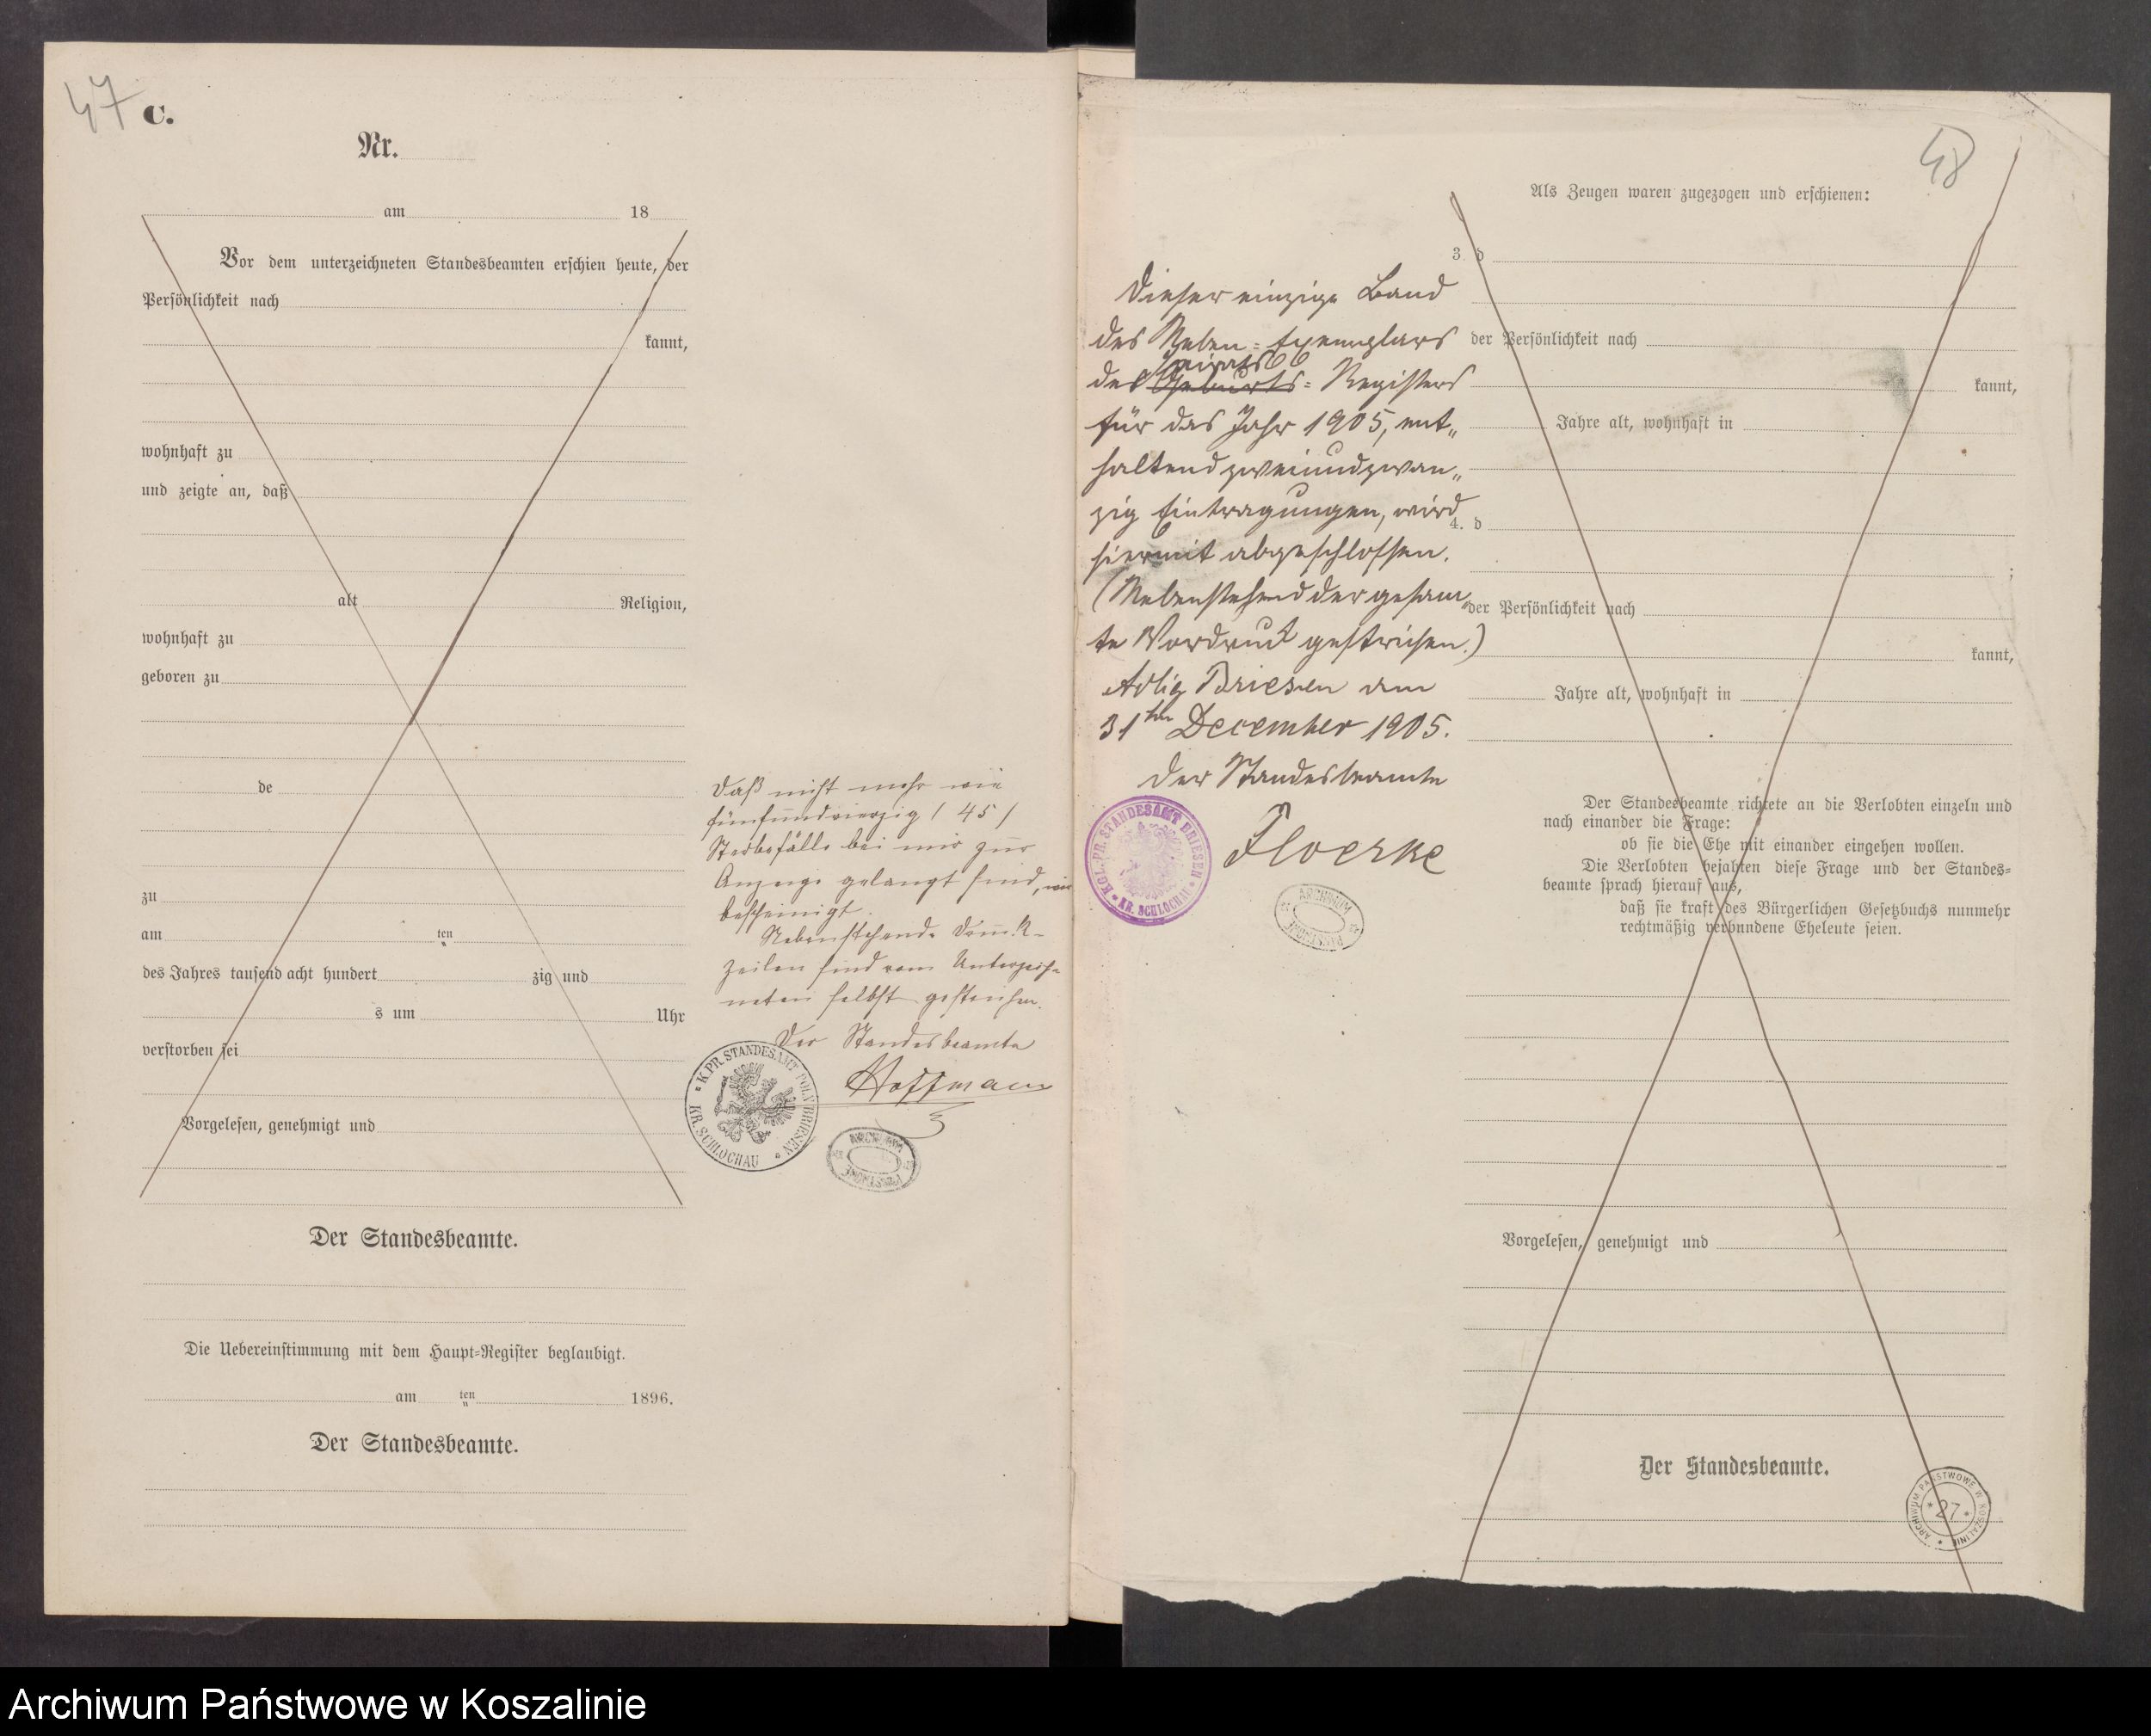 47
C.
Nr.
am 18
Vor dem unterzeichneten Standesbeamten erschien heute, der
Persönlichkeit nach
kannt,
wohnhaft zu
und zeigte an, daß
alt Religion,
wohnhaft zu
geboren zu
de
zu
am ten
des Jahres tausend acht hundert zig und
s um Uhr
verstorben sei
Vorgelesen, genehmigt und
Der Standesbeamte.
Die Uebereinstimmung mit dem Haupt-Register beglaubigt.
am ten 1896.
Der Standesbeamte.
Daß nicht mehr wie
fünfundvierzig / 45 /
Sterbefälle bei mir zur
Anzeige gelangt sind, wird
bescheinigt.
Nebenstehende Druck-
zeilen sind vom Unterzeich-
neten selbst gestrichen.
Der Standesbeamte
Hoffmann
K. PR. STANDESAMT POLN BRIESEN
KR. SCHLOCHAU
ARCHIWUM
PAŃSTWOWE
48
Als Zeugen waren zugezogen und erschienen:
3. d
der Persönlichkeit nach
kannt,
Jahre alt, wohnhaft in
4. d
der Persönlichkeit nach
kannt,
Jahre alt, wohnhaft in
Der Standesbeamte richtete an die Verlobten einzeln und
nach einander die Frage:
ob sie die Ehe mit einander eingehen wollen.
Die Verlobten bejahten diese Frage und der Standes-
beamte sprach hierauf aus,
daß sie kraft des Bürgerlichen Gesetzbuchs nunmehr
rechtmäßig verbundene Eheleute seien.
Vorgelesen, genehmigt und
Der Standesbeamte.
Dieser einzige Band
des Neben-Exemplars
Heirats
des Geburts-Registers
für das Jahr 1905, ent„
haltend zweiundzwan„
zig Eintragungen, wird
hiermit abgeschlossen.
(Nebenstehend der gesam„
te Vordruck gestrichen.)
Adlig Briesen am
31ten December 1905.
Der Standesbeamte
Floerke
KGL. PR. STANDESAMT BRIESEN
KR. SCHLOCHAU
ARCHIWUM
PAŃSTWOWE
ARCHIWUM PAŃSTWOWE W KOSZALINIE
27
Archiwum Państwowe w Koszalinie